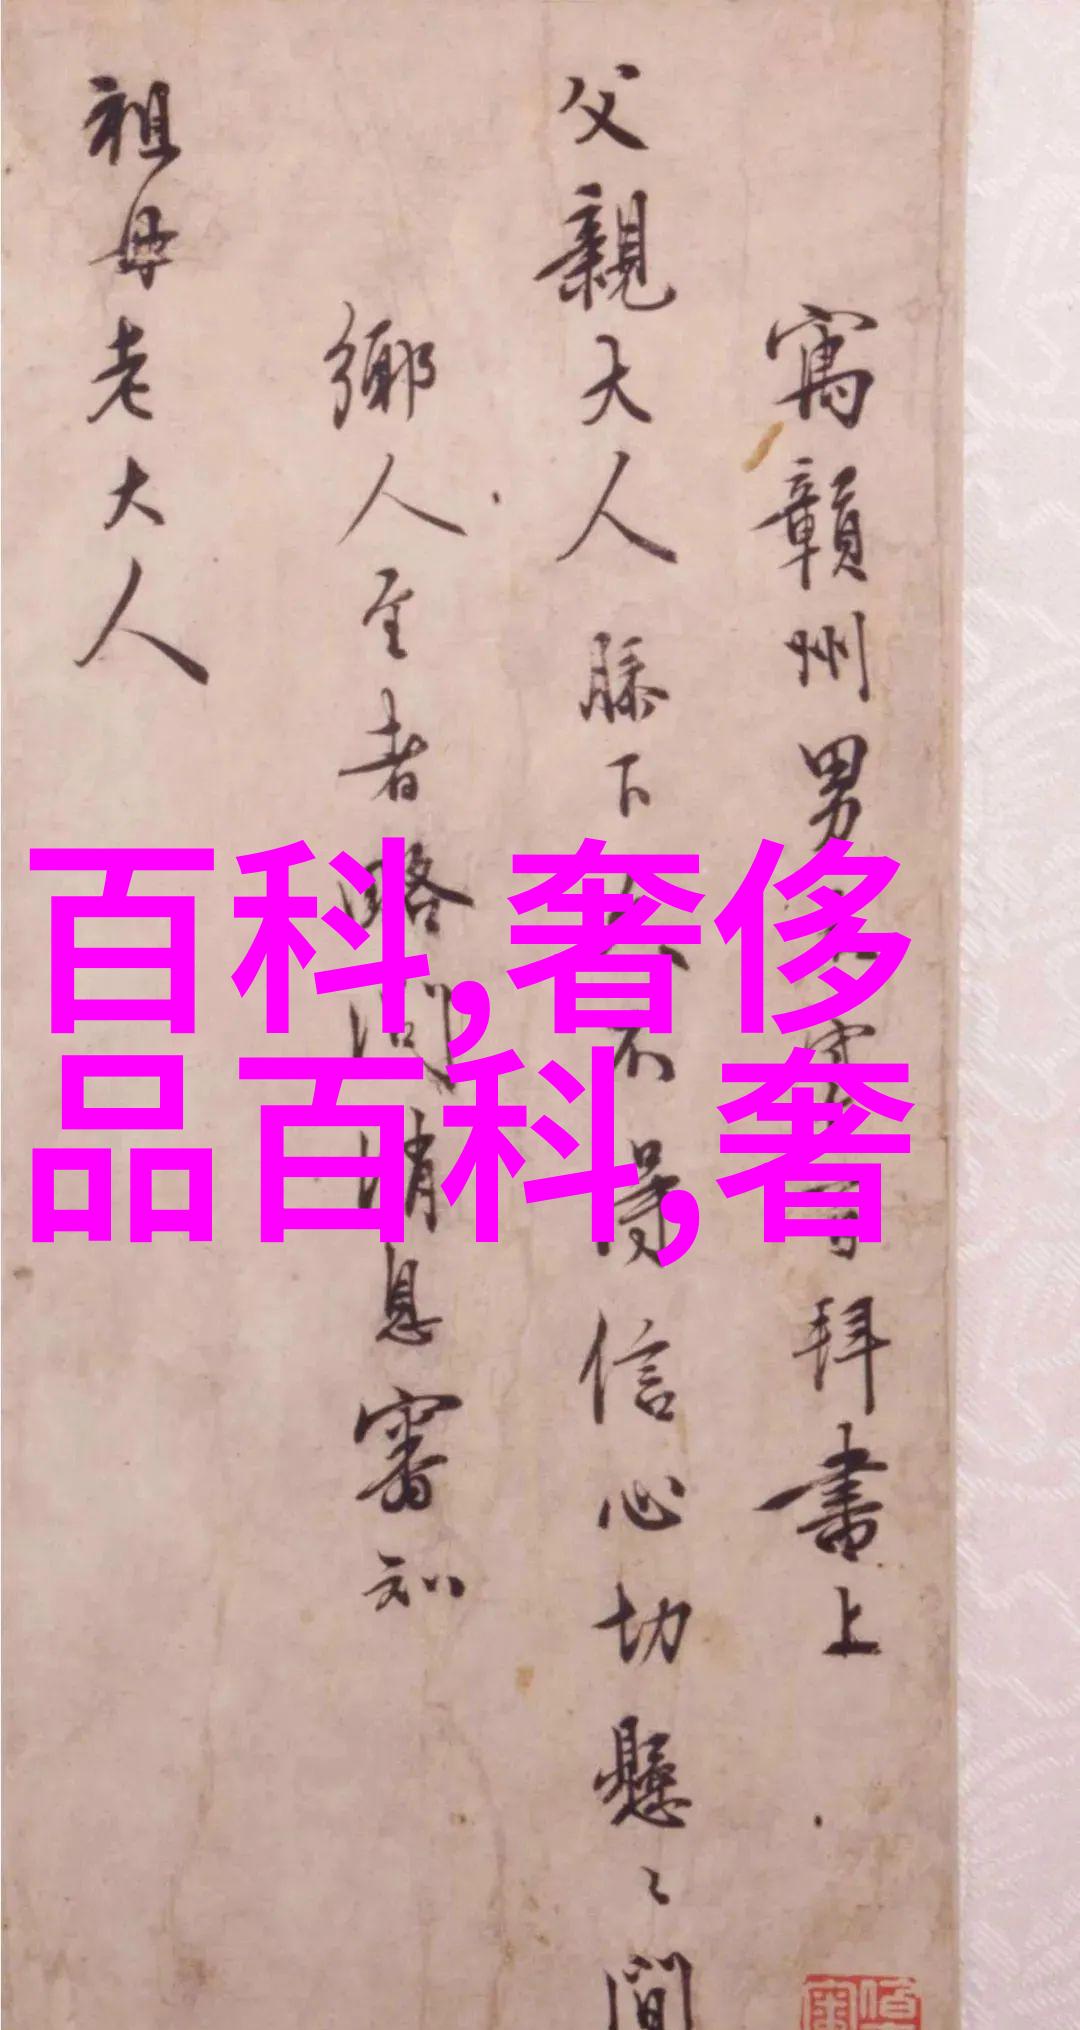 寓贛州男
拜書上
父親大人膝下久不得信心切懸〻間
鄉人至者略問消息審知
祖母老大人
百科,奢侈
品百科,奢